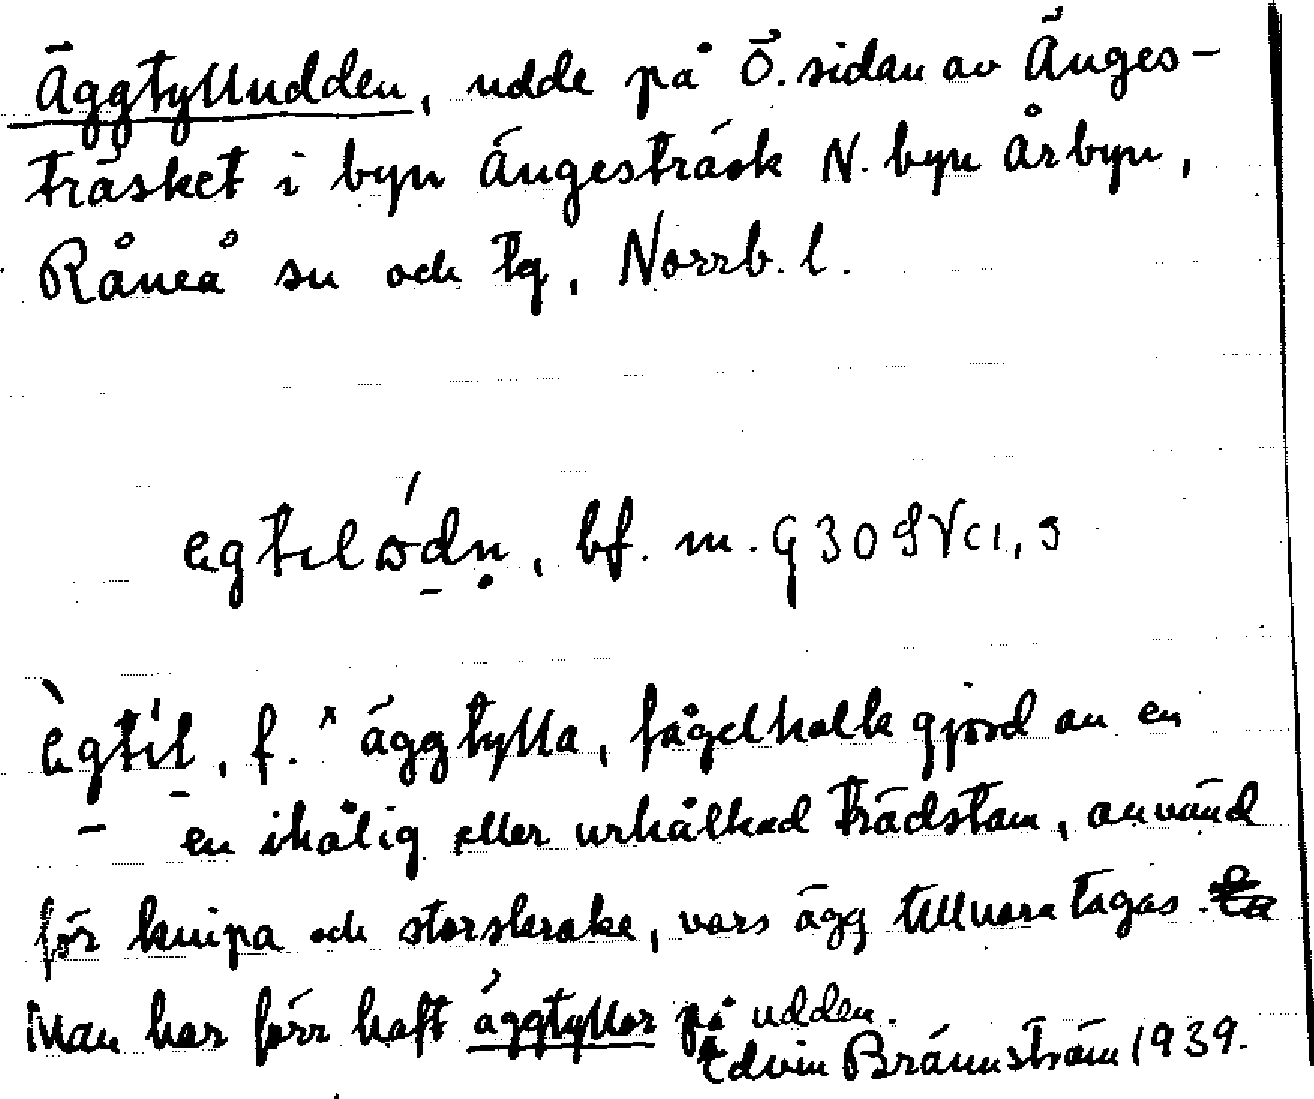 Äggtylludden, udde på Ö. sidan av Änges-
träsket i byn Ängesträsk N. byn Årbyn,
Råneå sn och tg, Norrb. l.
bf. m.
f. ˣ äggtylla, fågelholk gjord av en
en ihålig eller urholkad trädstam, använd
för knipa och storskrake, vars ägg tillvaratagas.
Man har förr haft äggtyllor på udden.
Edvin Brännström 1939.